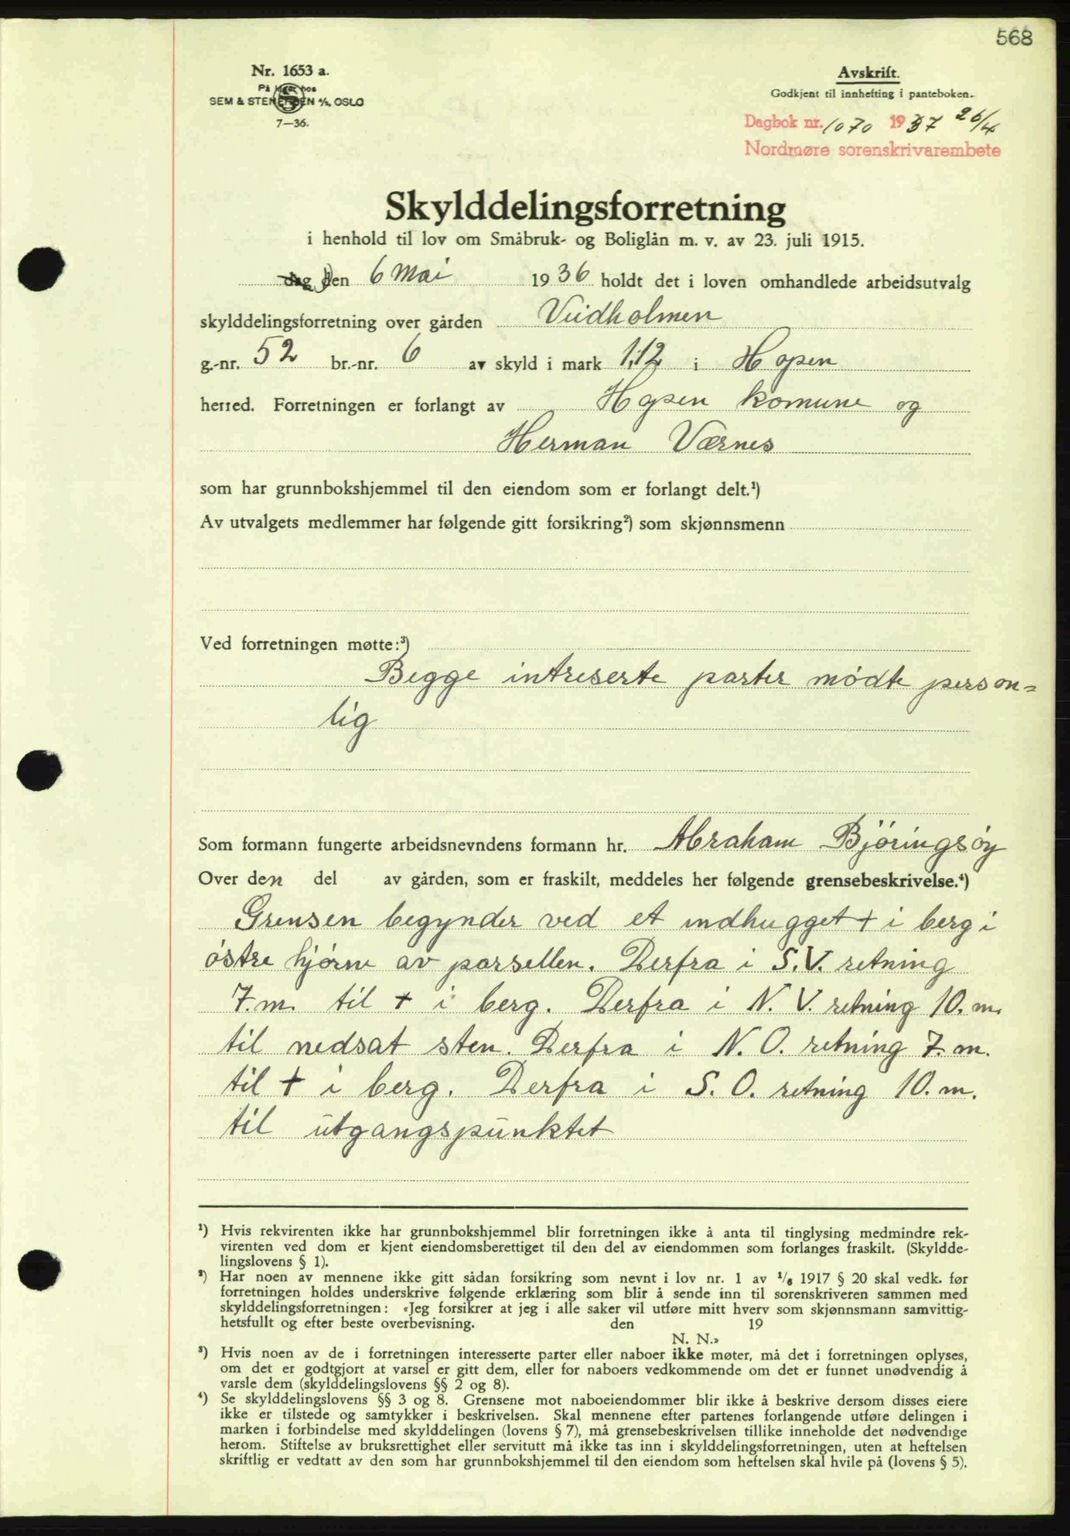 568
Nr. 1653 a.
På lager hos
SEM & STENERSEN A/S, OSLO
7—36.
Avskrift.
Godkjent til innhefting i panteboken.
Dagbok nr. 1070 1937 26/4
Nordmøre sorenskrivarembete
Skylddelingsforretning
i henhold til lov om Småbruk- og Boliglån m. v. av 23. juli 1915.
dag den 6 Mai 1936 holdt det i loven omhandlede arbeidsutvalg
skylddelingsforretning over gården Veidholmen
g.-nr. 52 br.-nr. 6 av skyld i mark 1.12 i Hopen
herred. Forretningen er forlangt av Hopen komune og
Herman Værnes
som har grunnbokshjemmel til den eiendom som er forlangt delt.¹)
Av utvalgets medlemmer har følgende gitt forsikring²) som skjønnsmenn
Ved forretningen møtte:³)
Begge intreserte parter mødte person=
lig
Som formann fungerte arbeidsnevndens formann hr. Abraham Björingsöy
Over den del av gården, som er fraskilt, meddeles her følgende grensebeskrivelse.⁴)
Grensen begynder ved et indhugget + i berg i
östre hjörne av parsellen. Derfra i S.V. retning
7. m. til + i berg. Derfra i N. V. retning 10. m.
til nedsat sten. Derfra i N. O. retning 7. m.
til + i berg. Derfra i S. O. retning 10. m.
til utgangspunktet
¹) Hvis rekvirenten ikke har grunnbokshjemmel blir forretningen ikke å anta til tinglysing medmindre rek-
virenten ved dom er kjent eiendomsberettiget til den del av eiendommen som forlanges fraskilt. (Skyldde-
lingslovens § 1).
²) Har noen av mennene ikke gitt sådan forsikring som nevnt i lov nr. 1 av 1/6 1917 § 20 skal vedk. før
forretningen holdes underskrive følgende erklæring som blir å sende inn til sorenskriveren sammen med
skylddelingsforretningen: «Jeg forsikrer at jeg i alle saker vil utføre mitt hverv som skjønnsmann samvittig-
hetsfullt og efter beste overbevisning. den 19
N. N.»
³) Hvis noen av de i forretningen interesserte parter eller naboer ikke møter, må det i forretningen oplyses,
om det er godtgjort at varsel er gitt dem, eller for naboers vedkommende om det er funnet unødvendig å
varsle dem (skylddelingslovens §§ 2 og 8).
⁴) Se skylddelingslovens §§ 3 og 8. Grensene mot naboeiendommer blir ikke å beskrive dersom disses eiere
ikke er tilstede og samtykker i beskrivelsen. Skal mennene efter partenes forlangende utføre delingen i
marken i forbindelse med skylddelingen (lovens § 7), må grensebeskrivelsen tillike inneholde det nødvendige
herom. Stiftelse av bruksrettighet eller servitutt må ikke tas inn i skylddelingsforretningen, uten at heftelsen
skriftlig er vedtatt av den som har grunnbokshjemmel til den eiendom som heftelsen skal hvile på (lovens § 5).